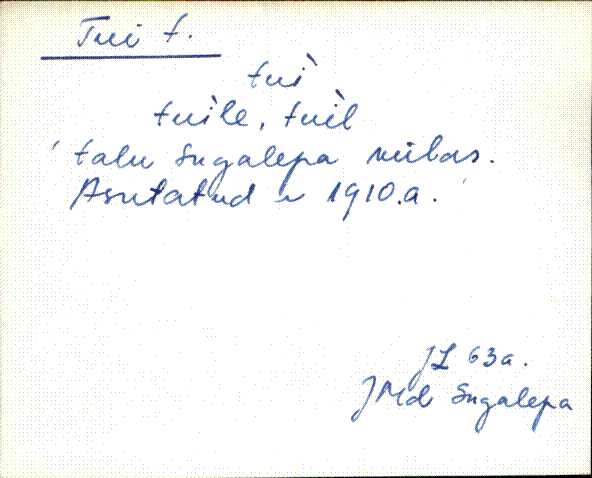 Tui t.
tui`
tui`le, tui`l
talu Sugalepa külas.
Asutatud u 1910.a.
JL 63a.
JMd Sugalepa